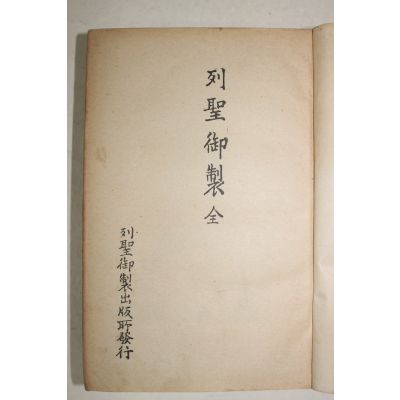 列聖御製全
列聖御製出版所發行